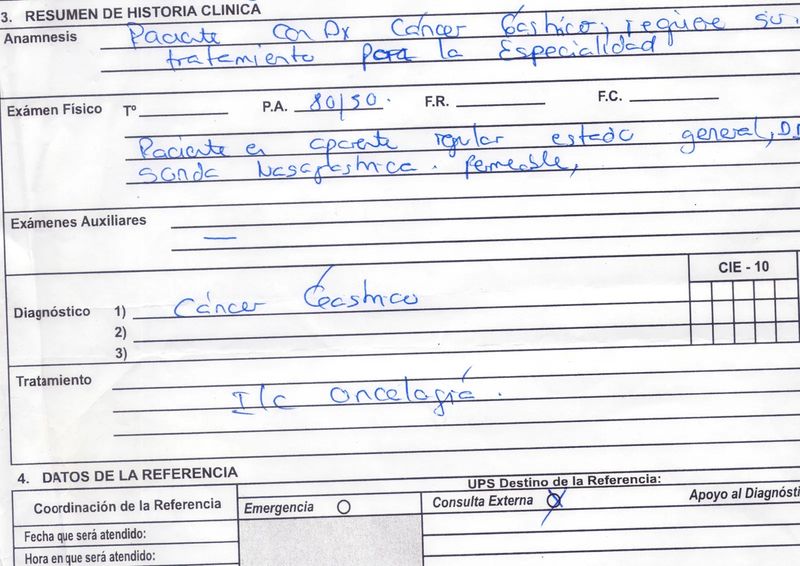 3. RESUMEN DE HISTORIA CLINICA
Anamnesis Paciente con Dx Cáncer Gástrico; requiere su
tratamiento para la Especialidad
Exámen Físico Tº P.A. 80/50. F.R. F.C.
Paciente en aparente regular estado general,
Sonda Nasogastrica. permeable,
Exámenes Auxiliares —
CIE - 10
Diagnóstico 1) Cáncer Gastrico
2)
3)
Tratamiento
I/c oncología.
4. DATOS DE LA REFERENCIA
UPS Destino de la Referencia:
Coordinación de la Referencia Emergencia Consulta Externa X Apoyo al Diagnósti
Fecha que será atendido:
Hora en que será atendido: